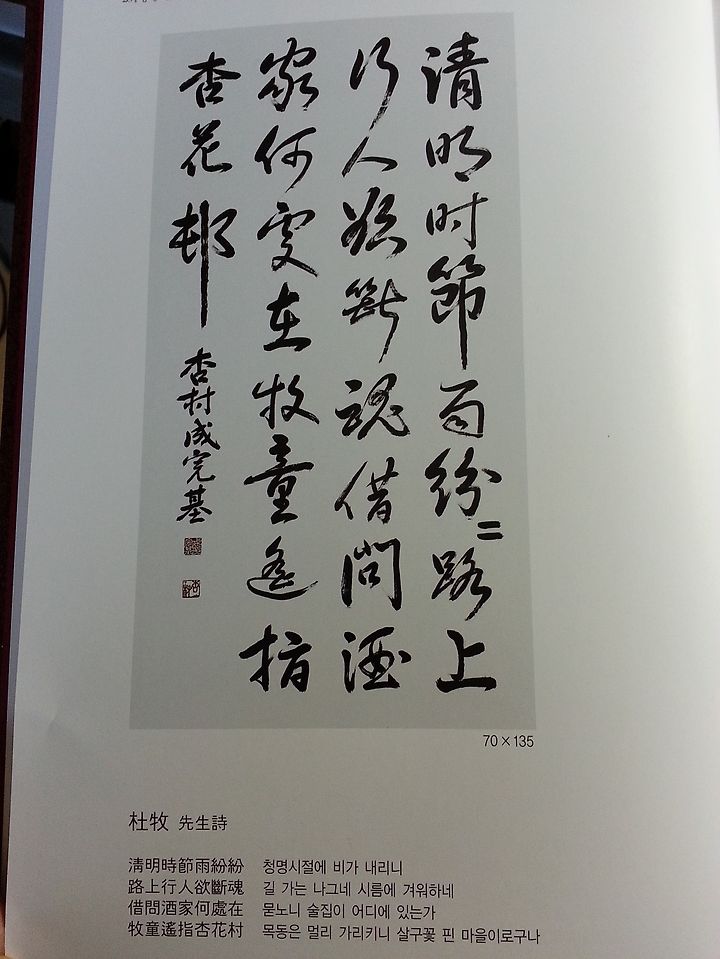 清明时節雨紛〻路上
行人欲斷魂借問酒
家何處在牧童遙指
杏花邨
杏村成完基
70×135
杜牧 先生詩
淸明時節雨紛紛 청명시절에 비가 내리니
路上行人欲斷魂 길 가는 나그네 시름에 겨워하네
借問酒家何處在 묻노니 술집이 어디에 있는가
牧童遙指杏花村 목동은 멀리 가리키니 살구꽃 핀 마을이로구나